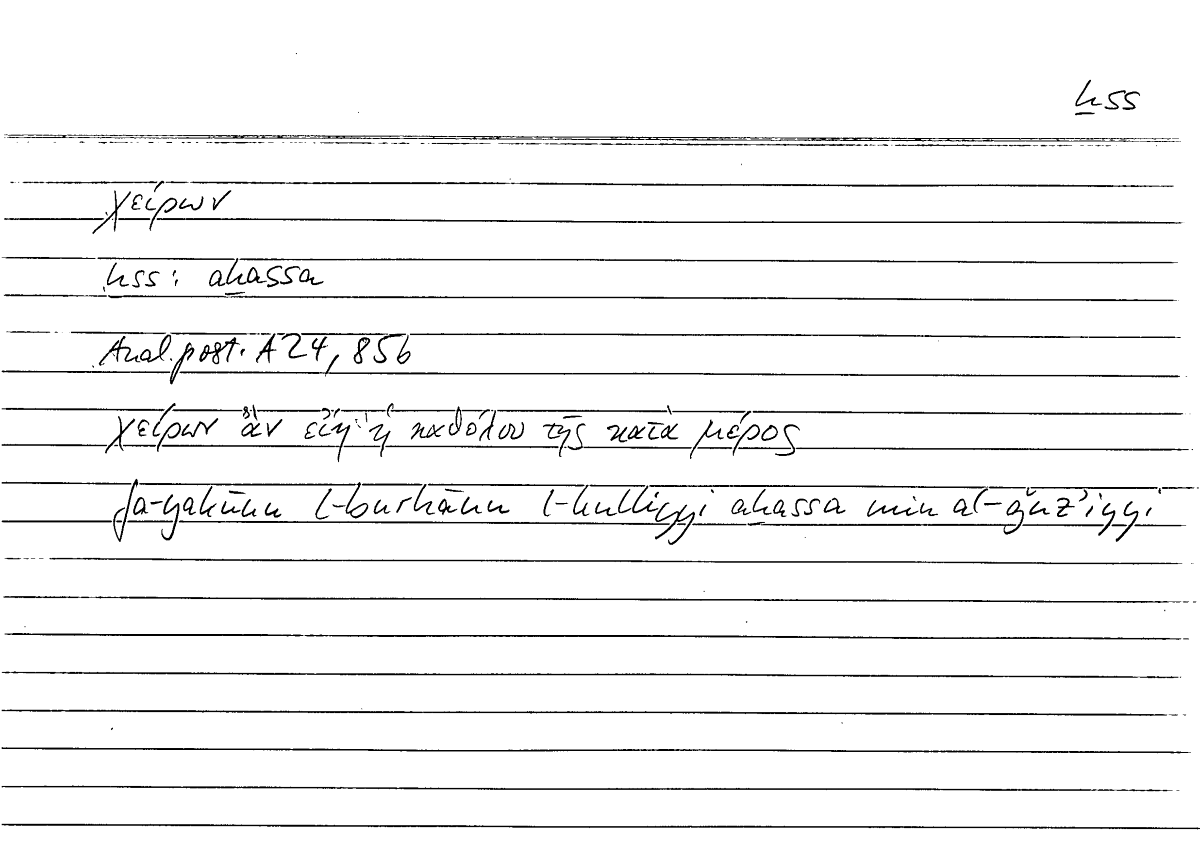 ḫss
χείρων
ḫss: aḫassa
Anal.post. A 24, 85b
χείρων ἂν εἴη ἡ καθόλου τῆς κατὰ μέρος
fa-yakūnu l-burhānu l-kulliyyi aḫassa min al-ǧuz'iyyi